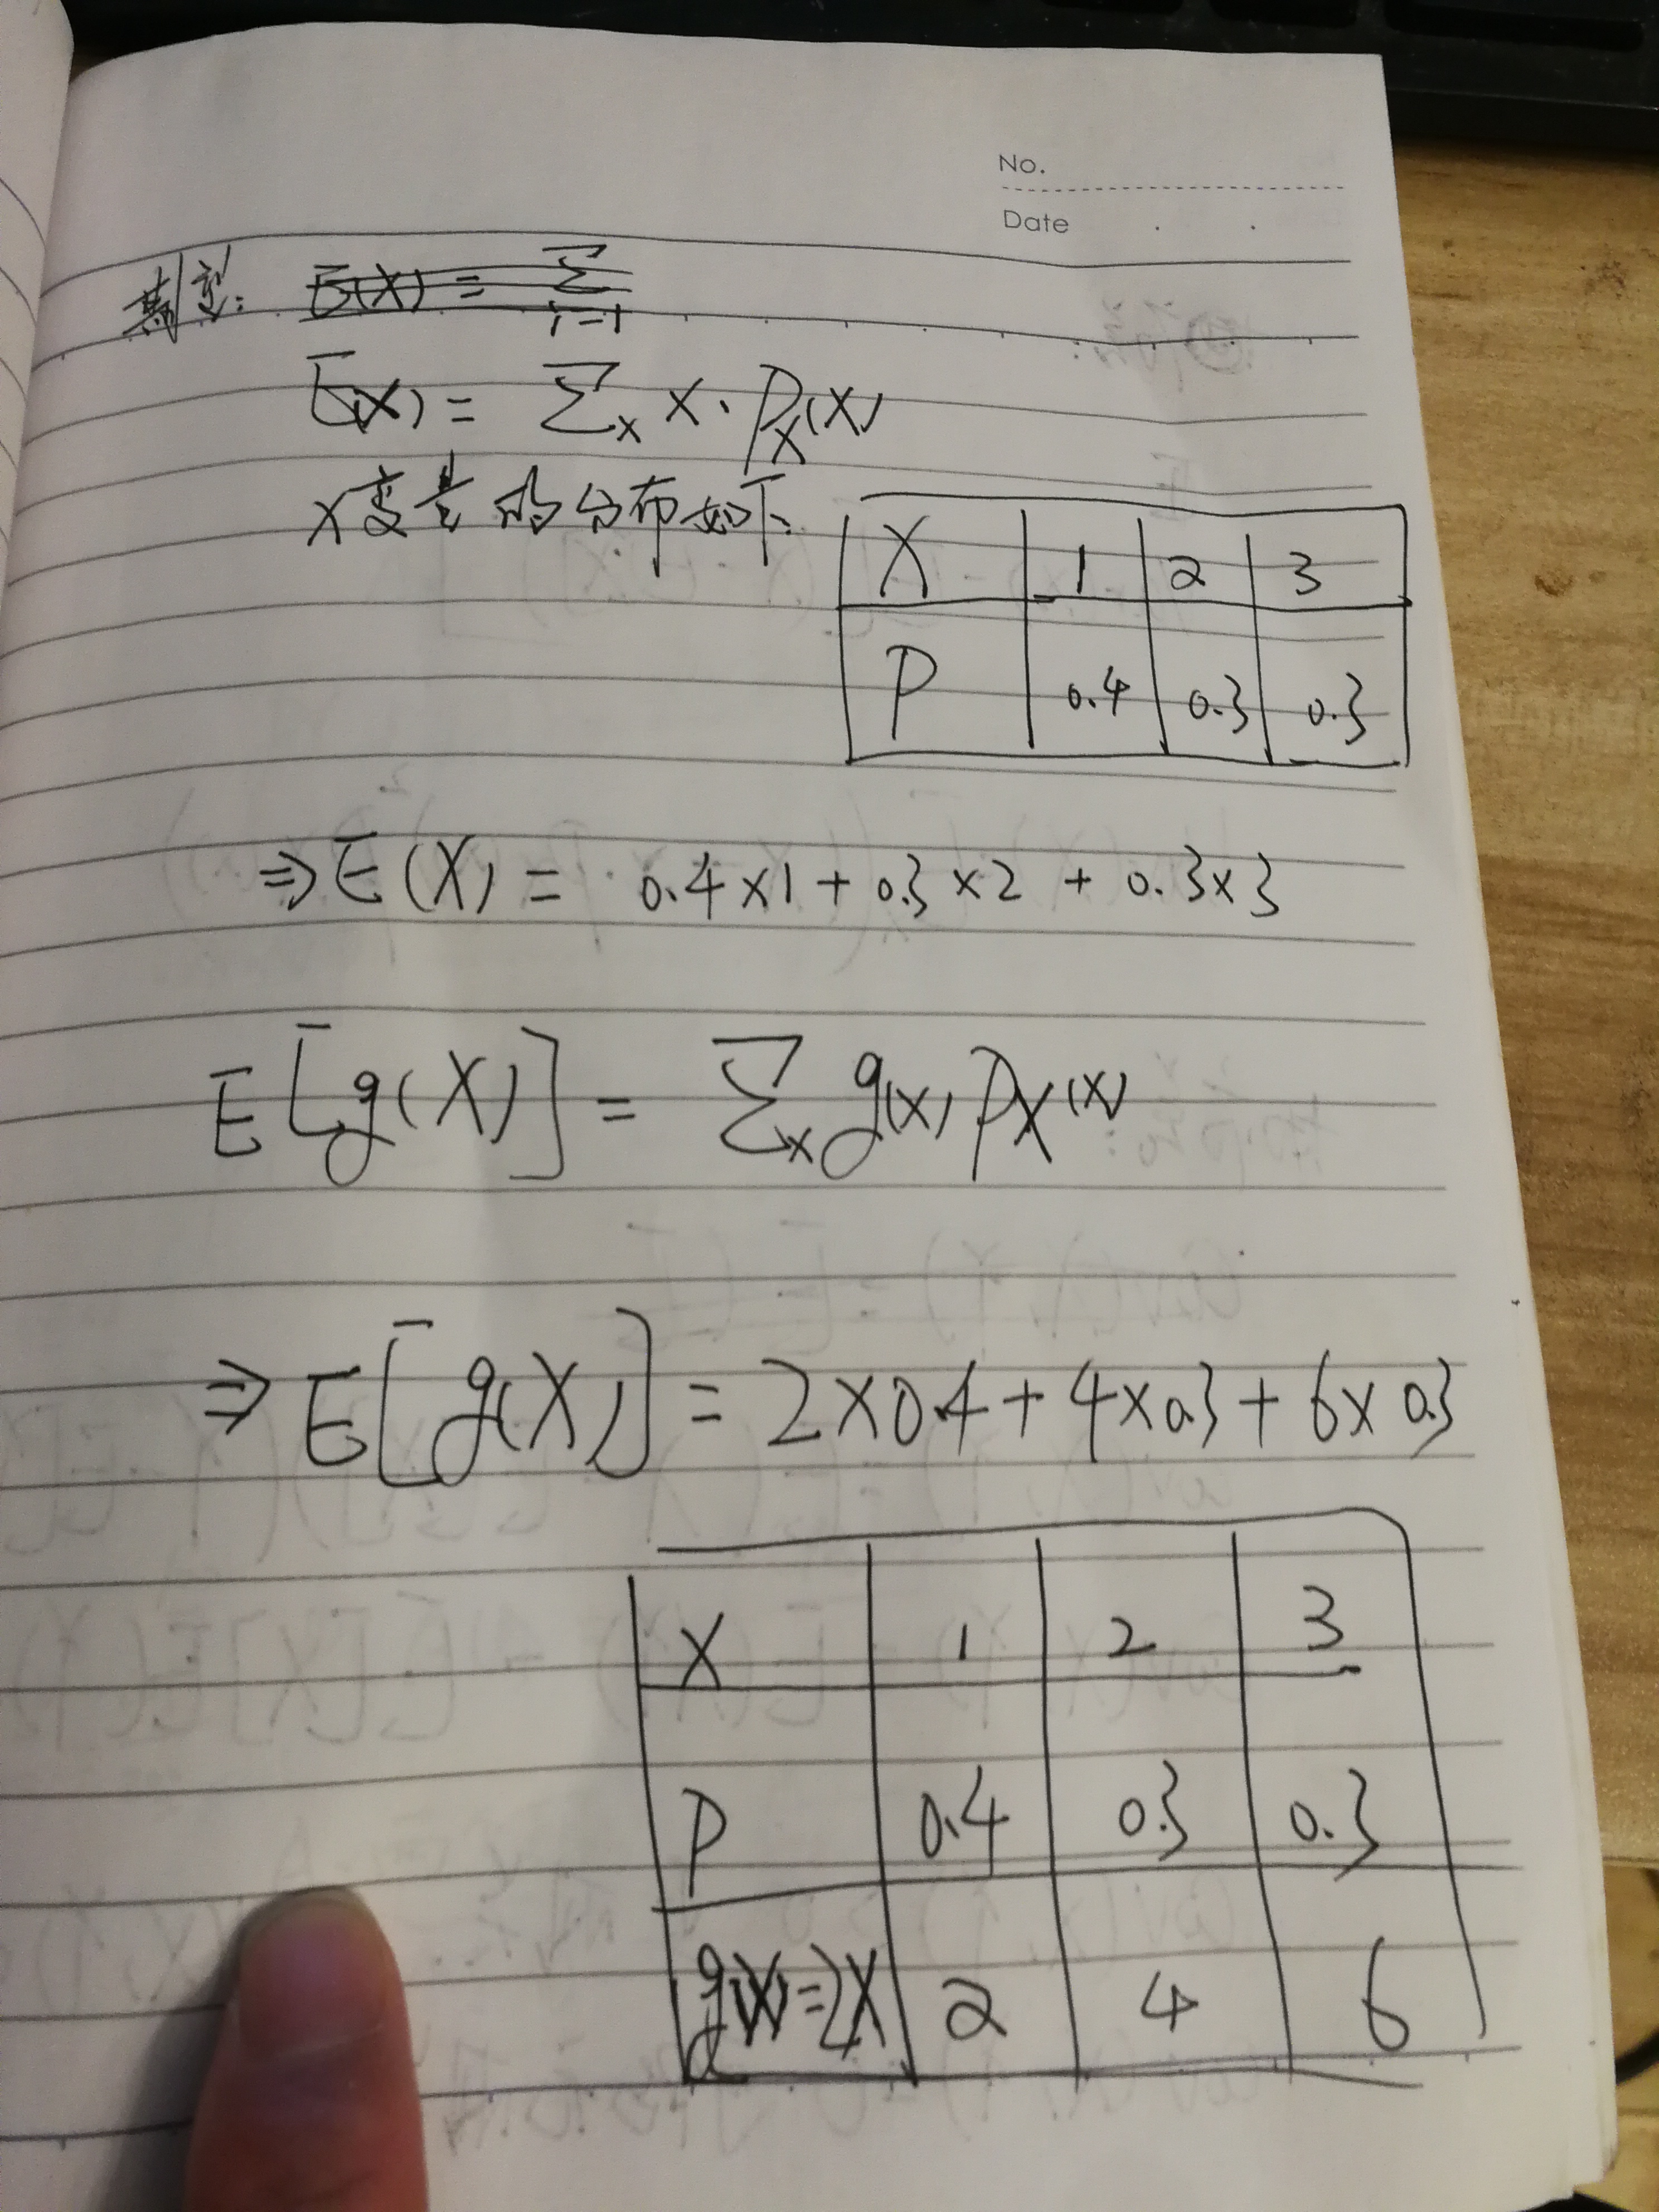 No.
Date
期望: E(X) = Σ i=1
E(X) = Σx x · Px(x)
X变量的分布如下:
X 1 2 3
P 0.4 0.3 0.3
⇒ E(X) = 0.4×1 + 0.3×2 + 0.3×3
E[g(X)] = Σx g(x) Px(x)
⇒ E[g(X)] = 2×0.4 + 4×0.3 + 6×0.3
X 1 2 3
P 0.4 0.3 0.3
g(X)=2X 2 4 6